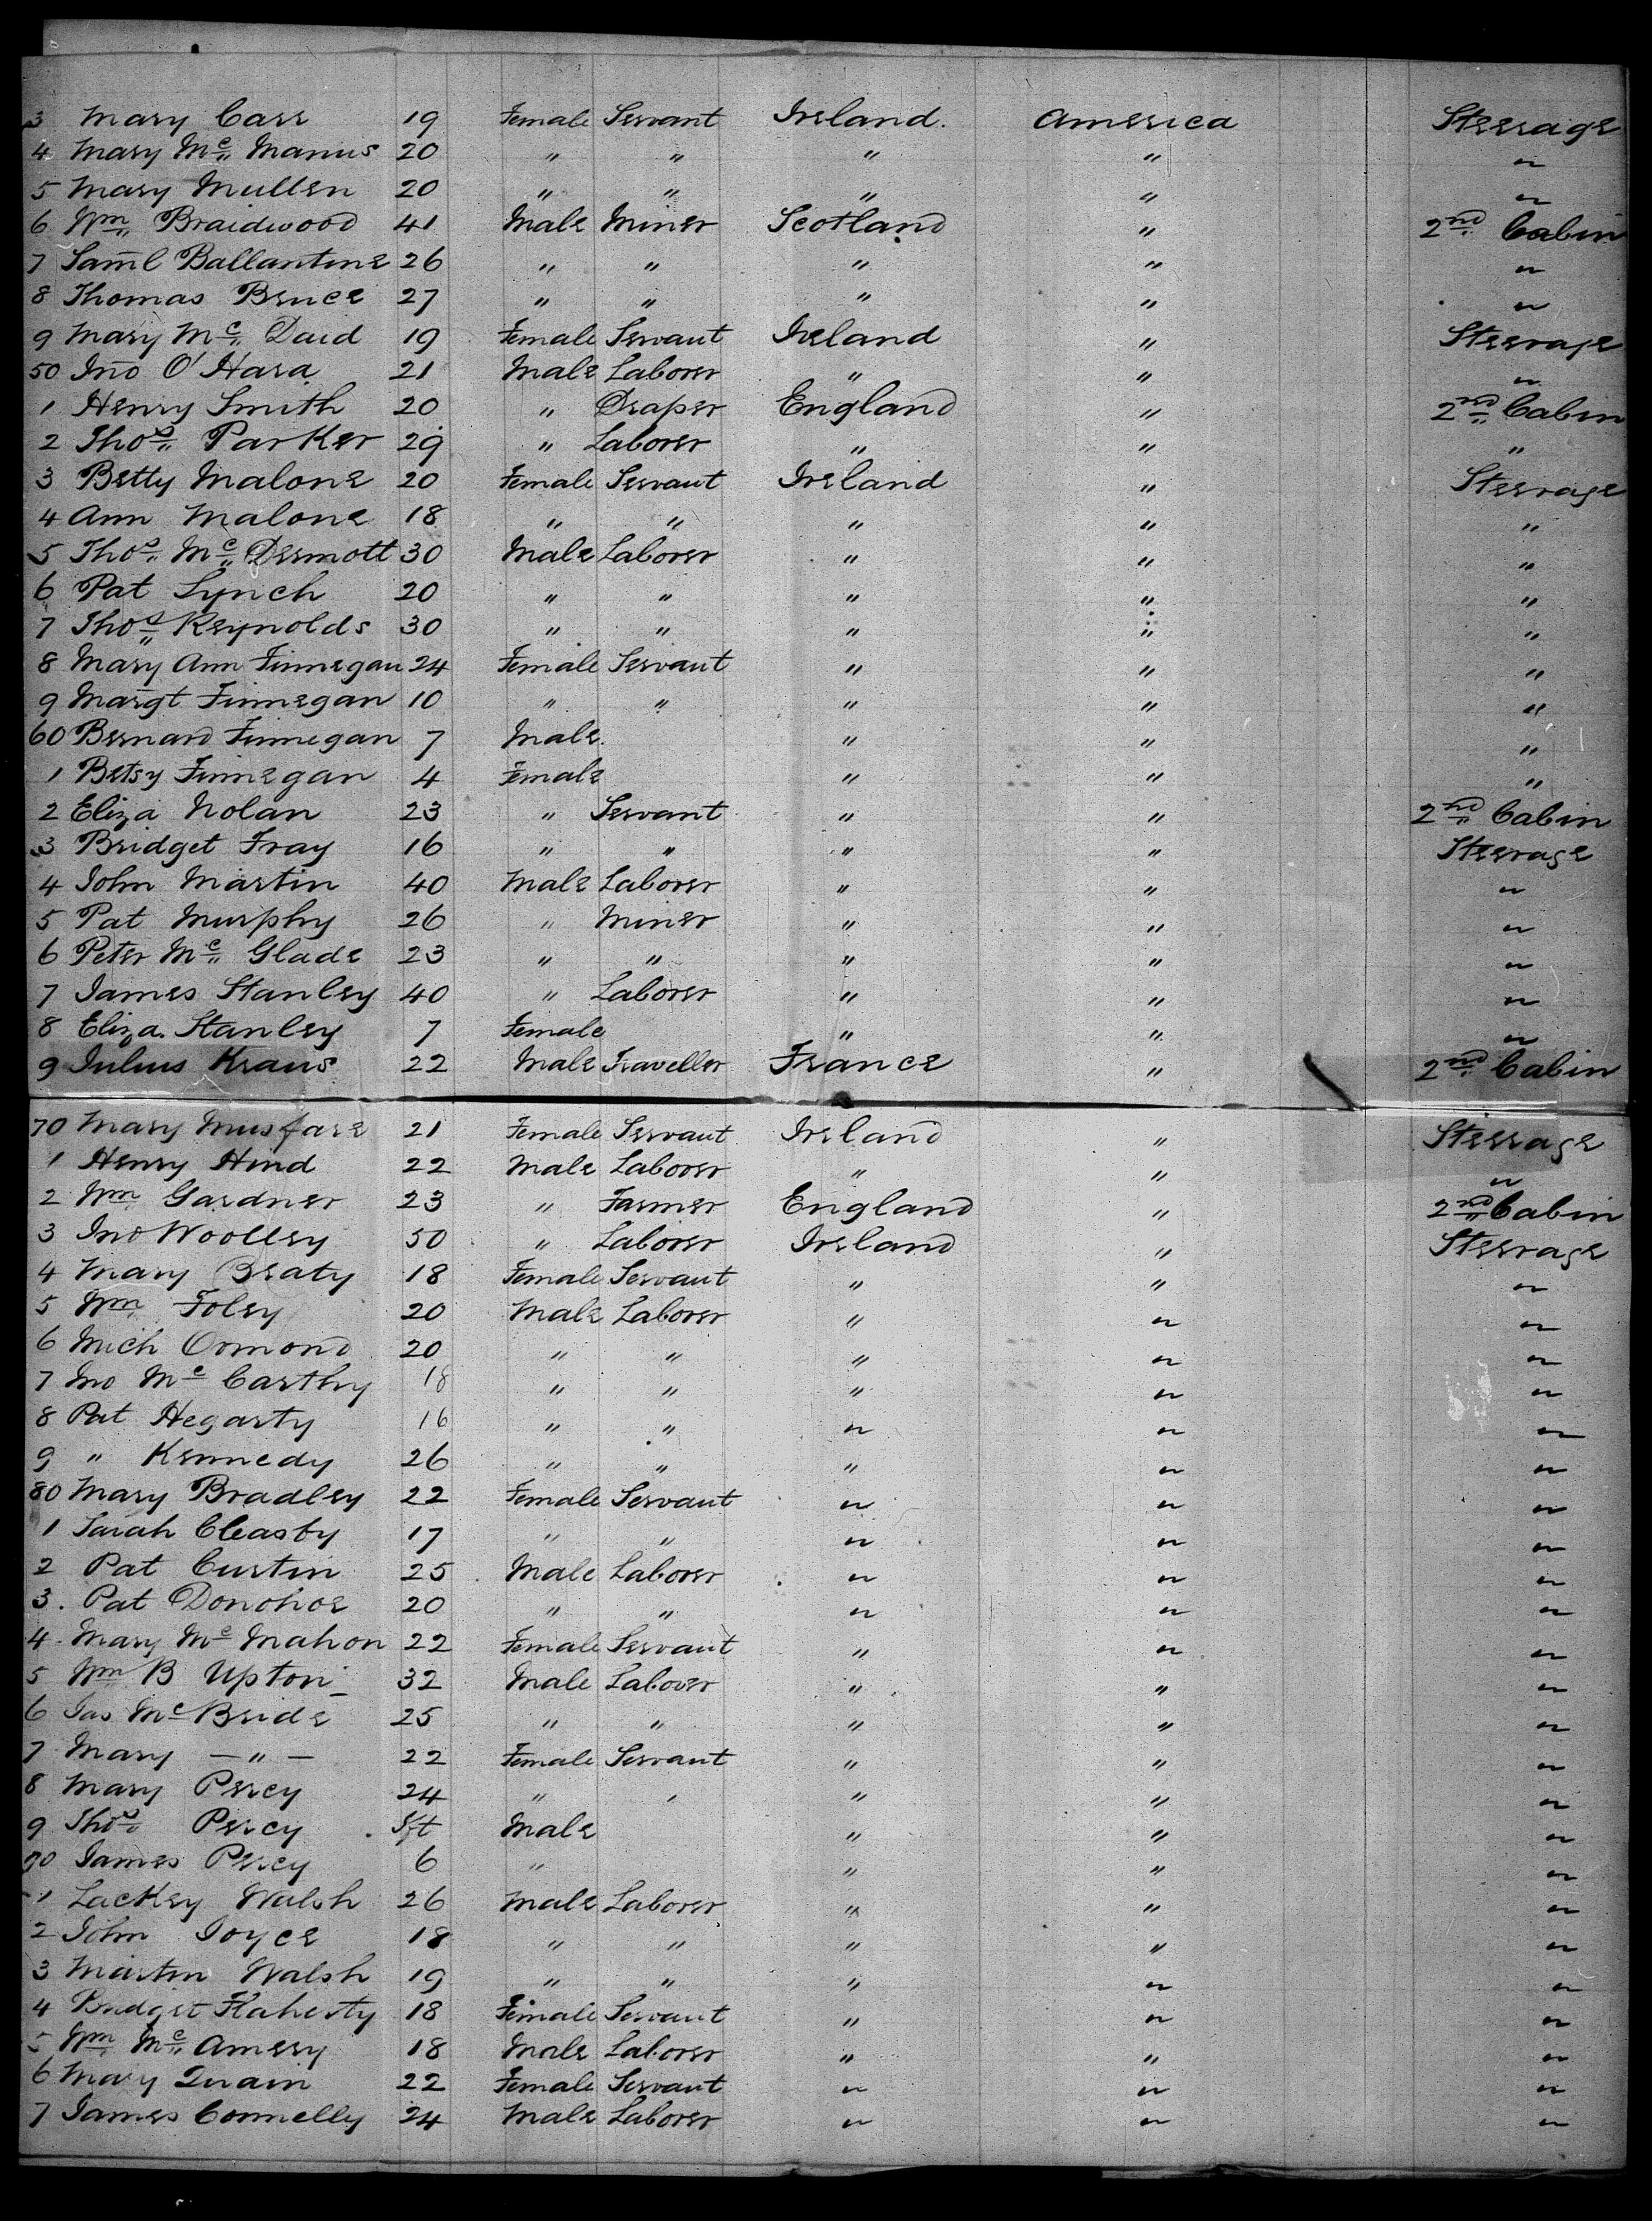 3 Mary Carr 19 Female Servant Ireland. America Steerage
4 Mary Mc Manus 20 " " " " "
5 Mary Mullen 20 " " " " "
6 Wm Braidwood 41 Male Miner Scotland " 2nd Cabin
7 Saml Ballantine 26 " " " " "
8 Thomas Bruce 27 " " " " "
9 Mary Mc Daid 19 Female Servant Ireland " Steerage
50 Jno O'Hara 21 Male Laborer " " "
1 Henry Smith 20 " Draper England " 2nd Cabin
2 Thos Parker 29 " Laborer " " "
3 Betty Malone 20 Female Servant Ireland " Steerage
4 Ann Malone 18 " " " " "
5 Thos Mc Dermott 30 Male Laborer " " "
6 Pat Lynch 20 " " " " "
7 Thos Reynolds 30 " " " " "
8 Mary Ann Finnegan 24 Female Servant " " "
9 Margt Finnegan 10 " " " " "
60 Bernard Finnegan 7 Male. " " "
1 Betsy Finnegan 4 Female " " "
2 Eliza Nolan 23 " Servant " " 2nd Cabin
3 Bridget Fray 16 " " " " Steerage
4 John Martin 40 Male Laborer " " "
5 Pat Murphy 26 " Miner " " "
6 Peter Mc Glade 23 " " " " "
7 James Stanley 40 " Laborer " " "
8 Eliza. Stanley 7 Female " " "
9 Julius Kraus 22 Male Traveller France " 2nd Cabin
70 Mary 21 Female Servant Ireland " Steerage
1 Henry Hind 22 Male Laborer " " "
2 Wm Gardner 23 " Farmer England " 2nd Cabin
3 Jno Woolley 50 " Laborer Ireland " Steerage
4 Mary Beaty 18 Female Servant " " "
5 Wm Foley 20 Male Laborer " " "
6 Mich Ormond 20 " " " " "
7 Jno Mc Carthy 18 " " " " "
8 Pat Hegarty 16 " " " " "
9 " Kennedy 26 " " " " "
80 Mary Bradley 22 Female Servant " " "
1 Sarah Cleasby 17 " " " " "
2 Pat Curtin 25 Male Laborer " " "
3. Pat Donohoe 20 " " " " "
4. Mary Mc Mahon 22 Female Servant " " "
5 Wm B Upton 32 Male Laborer " " "
6 Jas Mc Bride 25 " " " " "
7 Mary — " — 22 Female Servant " " "
8 Mary Percy 24 " " " " "
9 Thos Percy Male " " "
90 James Percy 6 " " " "
1 Lackey Walsh 26 Male Laborer " " "
2 John Joyce 18 " " " " "
3 Martin Walsh 19 " " " " "
4 Bridget Flaherty 18 Female Servant " " "
5 Wm Mc Amery 18 Male Laborer " " "
6 Mary Quain 22 Female Servant " " "
7 James Connelly 24 Male Laborer " " "